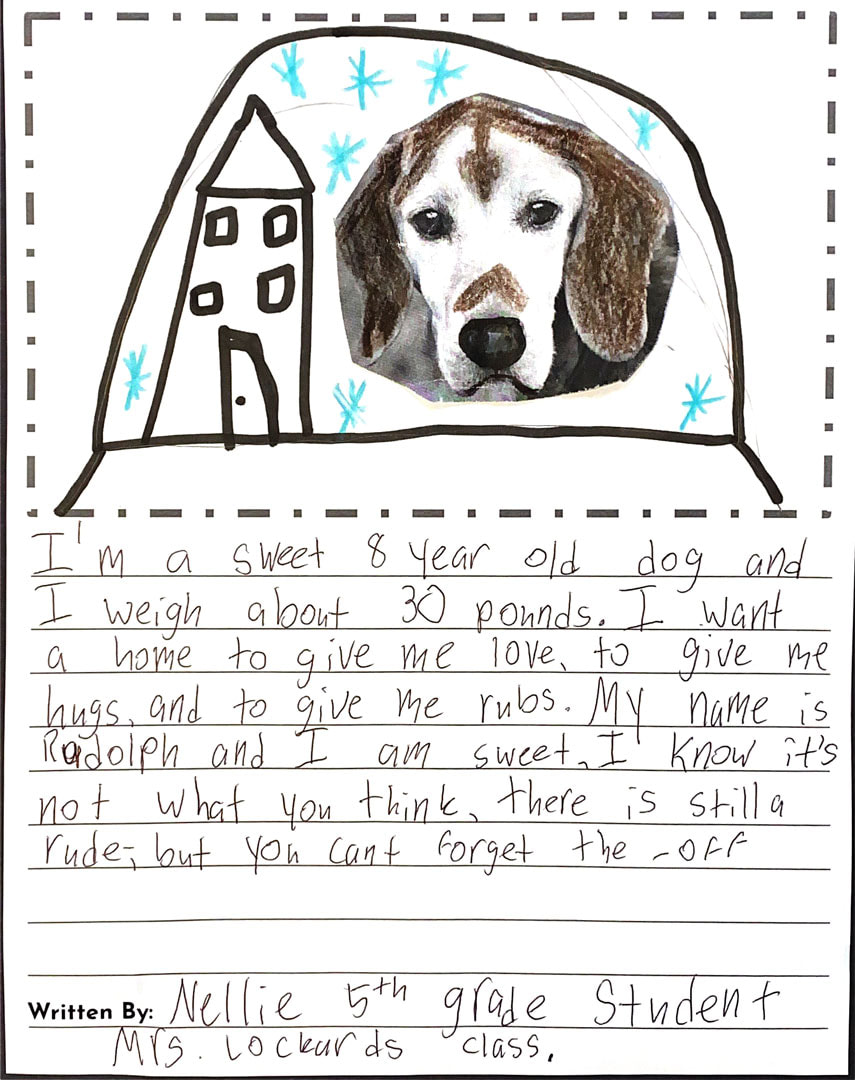 I'm a sweet 8 year old dog and
I weigh about 30 pounds. I want
a home to give me love, to give me
hugs, and to give me rubs. My name is
Rudolph and I am sweet, I know it's
not what you think, there is still a
rude-, but you cant forget the -off
Written By: Nellie 5th grade Student
Mrs. Lockards class.